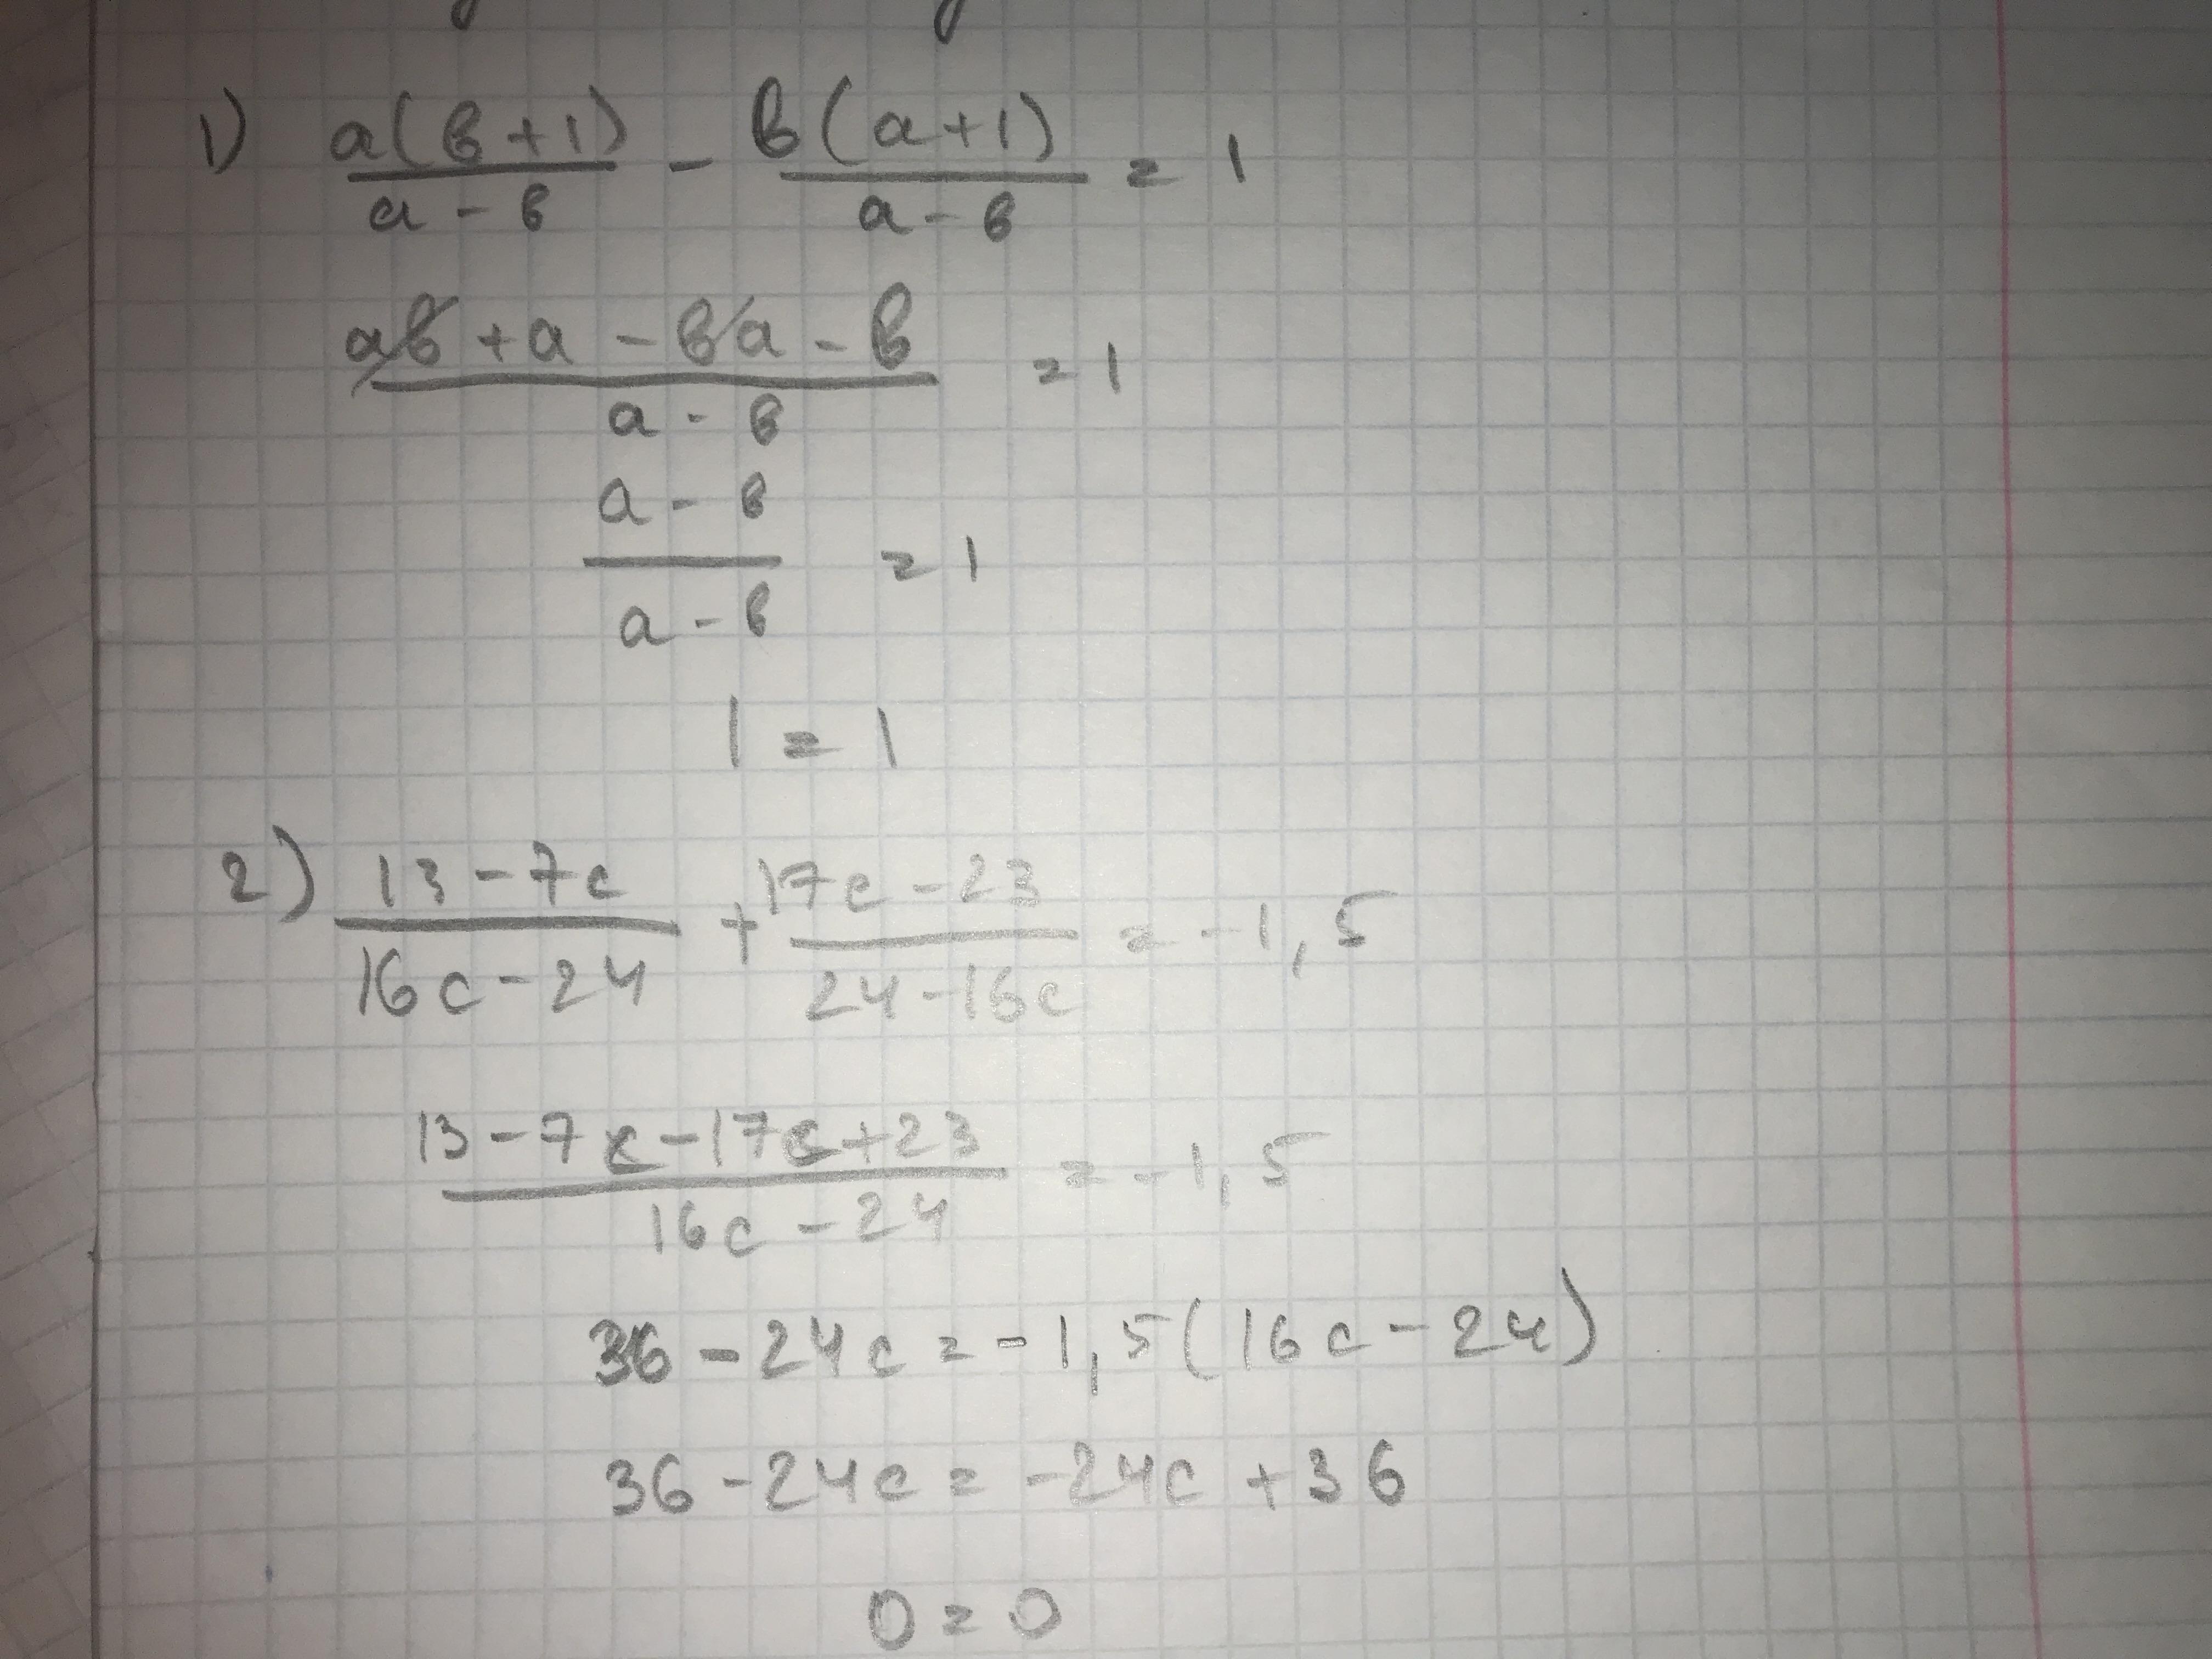 1) a(в+1)/a-в - в(a+1)/a-в = 1
aв+a-вa-в/a-в = 1
a-в/a-в = 1
1 = 1
2) 13-7c/16c-24 + 17c-23/24-16c = -1,5
13-7c-17c+23/16c-24 = -1,5
36-24c = -1,5(16c-24)
36-24c = -24c+36
0 = 0